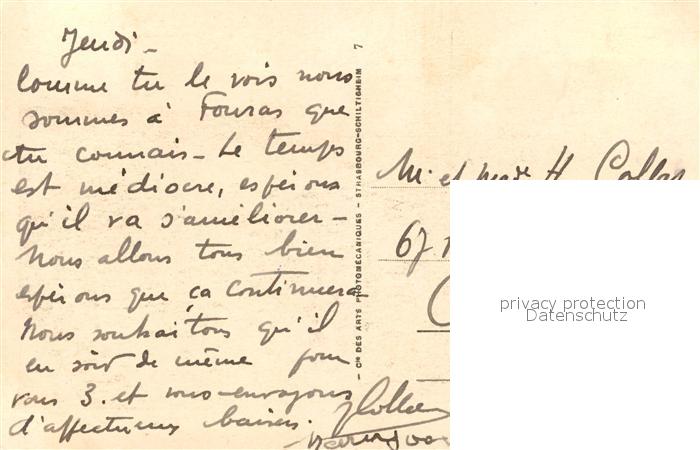 Jeudi -
Comme tu le vois nous
sommes à Fouras que
tu connais - Le temps
est médiocre, espérons
qu'il va s'améliorer -
Nous allons tous bien
espérons que ça continuera
Nous souhaitons qu'il
en soit de même pour
vous 3. et vous envoyons
d'affectueux baisers.
7
- Cie DES ARTS PHOTOMÉCANIQUES - STRASBOURG-SCHILTIGHEIM
Mr et Mme H.
67
privacy protection
Datenschutz